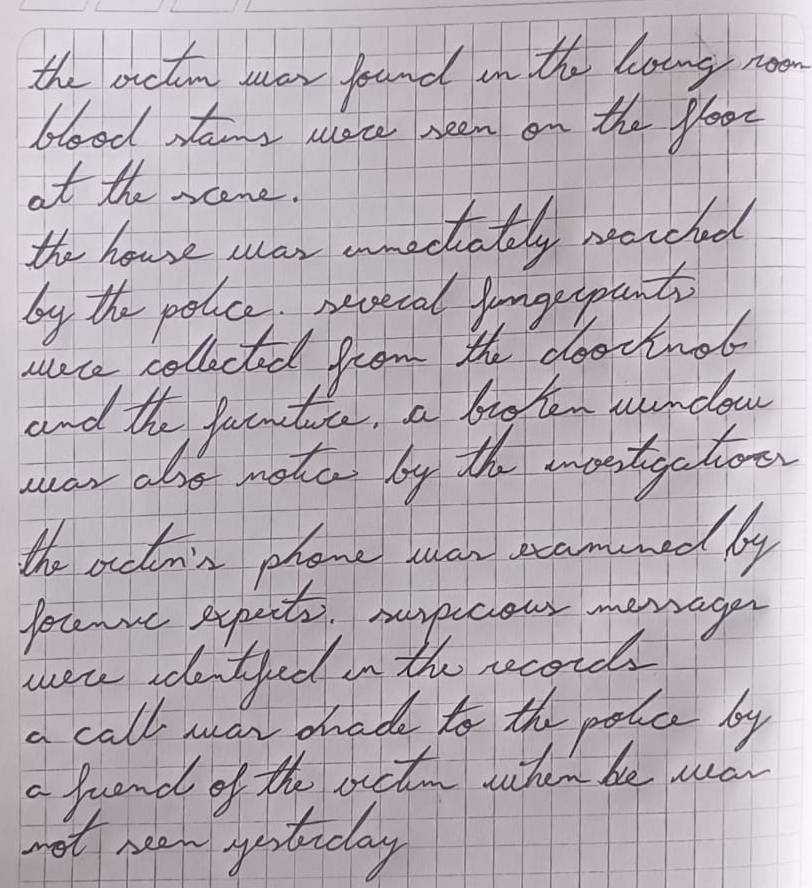 the victim was found in the living room
blood stains were seen on the floor
at the scene.
the house was immediately searched
by the police. several fingerprints
were collected from the doorknob
and the furniture. a broken window
was also notice by the investigations
the victim's phone was examined by
forensic experts. suspicious messages
were identified in the records
a call was made to the police by
a friend of the victim when he was
not seen yesterday